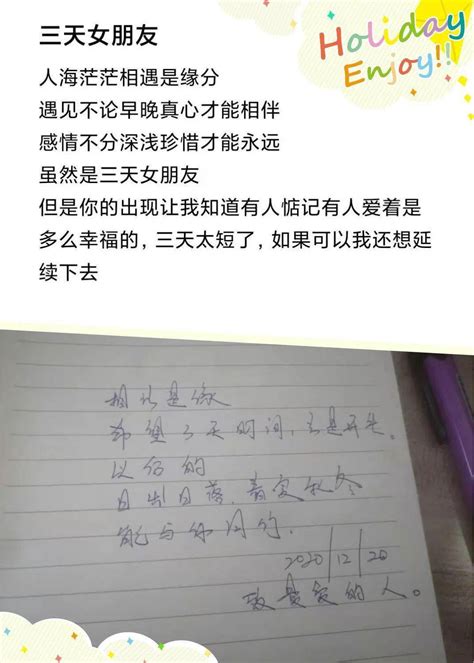 三天女朋友
Holiday
Enjoy!!
人海茫茫相遇是缘分
遇见不论早晚真心才能相伴
感情不分深浅珍惜才能永远
虽然是三天女朋友
但是你的出现让我知道有人惦记有人爱着是
多么幸福的，三天太短了，如果可以我还想延
续下去
相识是缘
希望3天时间，只是开头。
以后的
日出日落，春夏秋冬
能与你同行.
2020/12/20
致最爱的人。